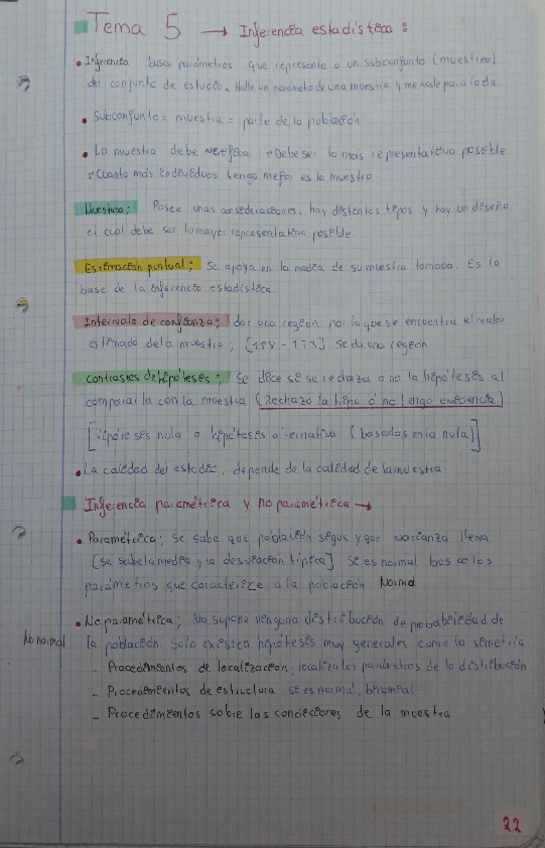 Tema 5 → Inferencia estadística:
• Inferencia busca parámetros que representa a un subconjunto (muestreo)
del conjunto de estudio. Hallo un parámetro de una muestra y me vale para toda
• Subconjunto = muestra = parte de la población
• La muestra debe verificar: * Debe ser lo mas representativa posible
* Cuanto más individuos tenga mejor es la muestra.
Muestreo; Posee unas consideraciones, hay distintos tipos y hay un diseño
el cual debe ser la mayor representativa posible.
Estimación puntual; Se apoya en la media de su muestra tomada. Es la
base de la inferencia estadística.
Intervalo de confianza; dar una región por la que se encuentra el valor
estimado de la muestra; se da una región
Contrastes de hipóteses; Se dice si se rechaza o no la hipótesis al
compararla con la muestra (Rechazo la hipo o no tengo evidencia)
[Hipótesis nola o hipótesis alternativa (basadas en la nula)]
• La calidad del estudio, depende de la calidad de la muestra.
Inferencia paramétrica y no paramétrica →
• Paramétrica; Se sabe que población sigue y que varianza lleva
[se sabe la media y la desviación típica] Si es normal busco los
parámetros que caracterize a la población Normal
• No paramétrica; No supone ninguna distribución de probabilidad de
No normal
la población. Solo existen hipóteses muy generales como la simetría
- Procedimientos de localización; localizales parámetros de la distribución
- Procedimientos de estructura si es normal, binomial.
- Procedimientos sobre las condiciones de la muestra
22